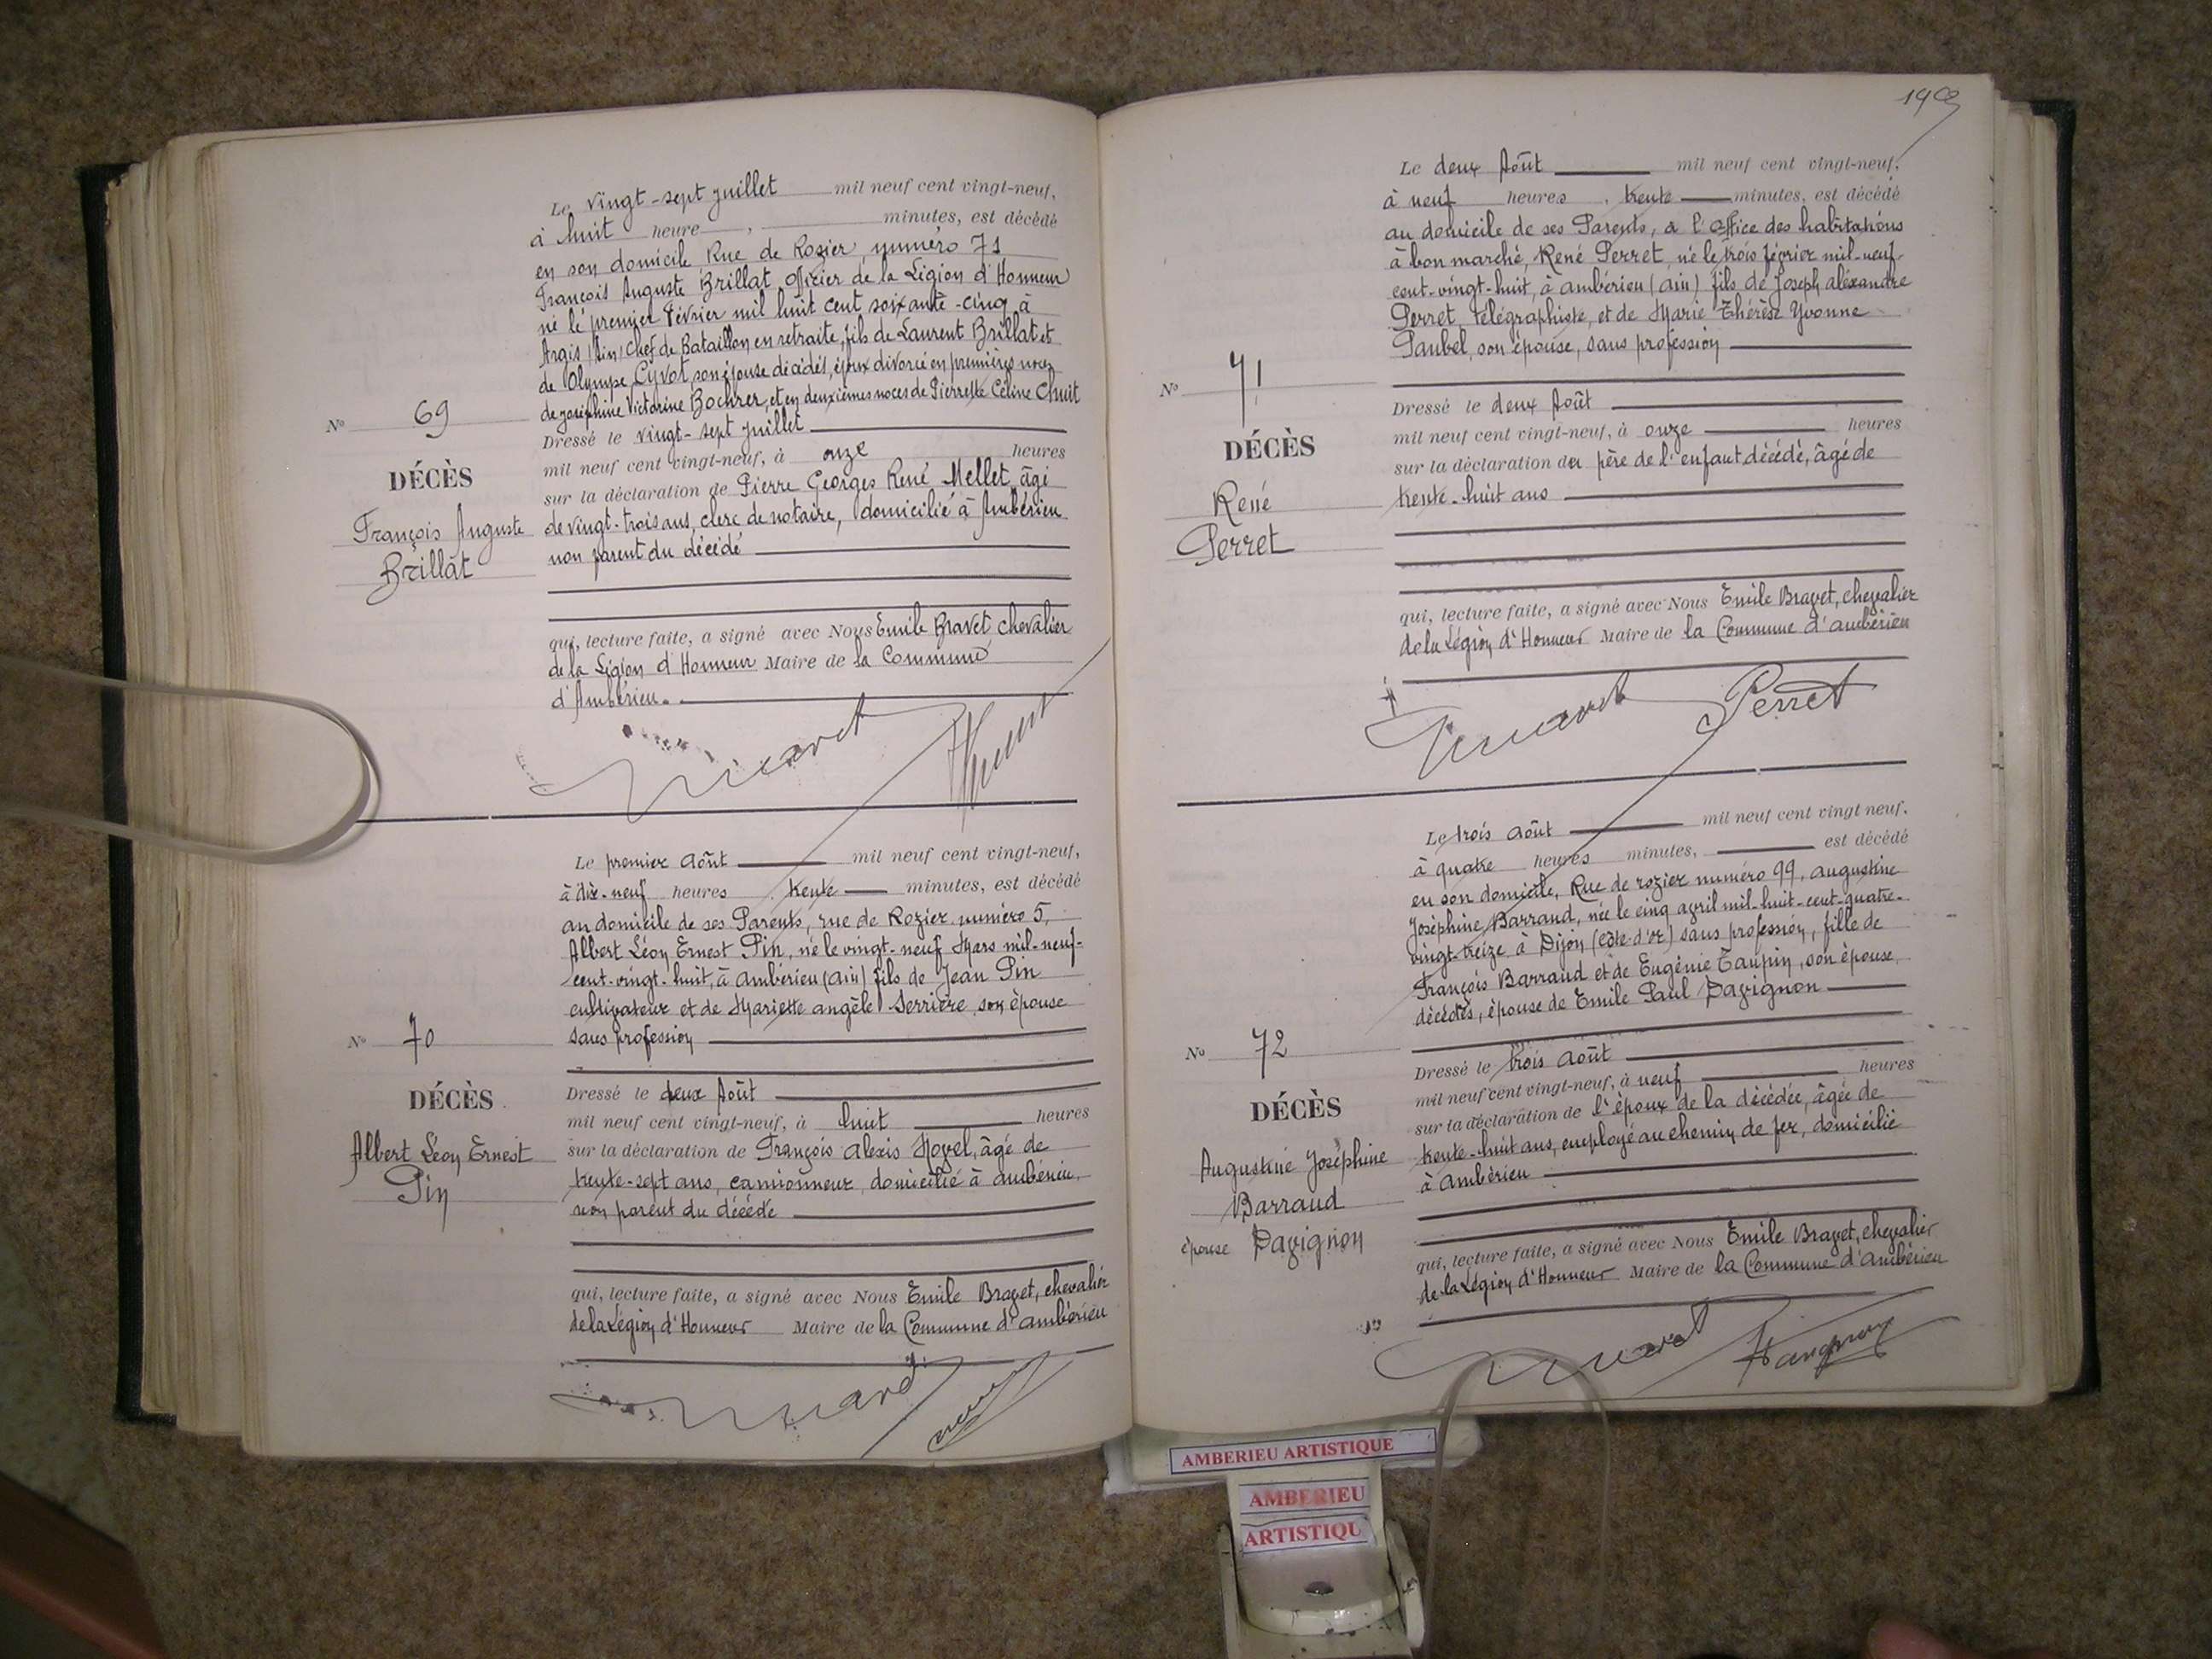 Le vingt-sept juillet mil neuf cent vingt-neuf,
à huit heure , minutes, est décédé
en son domicile Rue de Rozier, numéro 71
François Auguste Brillat, Officier de la Légion d'Honneur
né le premier Février mil huit cent soixante-cinq à
Argis (Ain) Chef de Bataillon en retraite, fils de Laurent Brillat et
de Olympe Cyvot, son épouse décédés, époux divorcé en premières noces
de Joséphine Victorine Bochrer, et en deuxièmes noces de Pierrette Céline Chuit
No 69
DÉCÈS
François Auguste
Brillat
Dressé le vingt-sept juillet
mil neuf cent vingt-neuf, à onze heures
sur la déclaration de Pierre Georges René Mellet, âgé
de vingt-trois ans, clerc de notaire, domicilié à Ambérieu
non parent du décédé
qui, lecture faite, a signé avec Nous Emile Bravet chevalier
de la Légion d'Honneur Maire de la Commune
d'Ambérieu.
Le premier Août mil neuf cent vingt-neuf,
à dix-neuf heures , trente minutes, est décédé
au domicile de ses Parents, rue de Rozier numéro 5,
Albert Léon Ernest Pin, né le vingt-neuf Mars mil-neuf-
cent-vingt-huit, à ambérieu (ain) fils de Jean Pin
cultivateur et de Mariette angèle Serrière, son épouse
sans profession
No 70
DÉCÈS
Albert Léon Ernest
Pin
Dressé le deux Août
mil neuf cent vingt-neuf, à huit heures
sur la déclaration de François alexis Hovel, âgé de
trente-sept ans, camionneur, domicilié à ambérieu,
non parent du décédé
qui, lecture faite, a signé avec Nous Emile Bravet, chevalier
de la Légion d'Honneur Maire de la Commune d'ambérieu
Le deux Août mil neuf cent vingt-neuf,
à neuf heures , trente minutes, est décédé
au domicile de ses Parents, à l'office des habitations
à bon marché, René Perret, né le trois février mil-neuf-
cent-vingt-huit, à ambérieu (ain) fils de Joseph aléxandre
Perret, télégraphiste, et de Marie Thérèse Yvonne
Paubel, son épouse, sans profession
No 71
DÉCÈS
René
Perret
Dressé le deux Août
mil neuf cent vingt-neuf, à onze heures
sur la déclaration du père de l'enfant décédé, âgé de
trente-huit ans
qui, lecture faite, a signé avec Nous Emile Bravet, chevalier
de la Légion d'Honneur Maire de la Commune d'ambérieu
Perret
Le trois août mil neuf cent vingt neuf,
à quatre heures minutes, est décédé
en son domicile, Rue de rozier numéro 99, augustine
Joséphine Barraud, née le cinq avril mil-huit-cent-quatre-
vingt-treize à Dijon (côte-d'or) sans profession, fille de
François Barraud et de Eugénie Taupin, son épouse,
décédés, épouse de Emile Paul Davignon
No 72
DÉCÈS
Augustine Joséphine
Barraud
épouse Davignon
Dressé le trois août
mil neuf cent vingt-neuf, à neuf heures
sur la déclaration de l'époux de la décédée, âgée de
trente-huit ans, employé au chemin de fer, domicilié
à ambérieu
qui, lecture faite, a signé avec Nous Emile Bravet, chevalier
de la Légion d'Honneur Maire de la Commune d'ambérieu
AMBERIEU ARTISTIQUE
AMBERIEU
ARTISTIQU